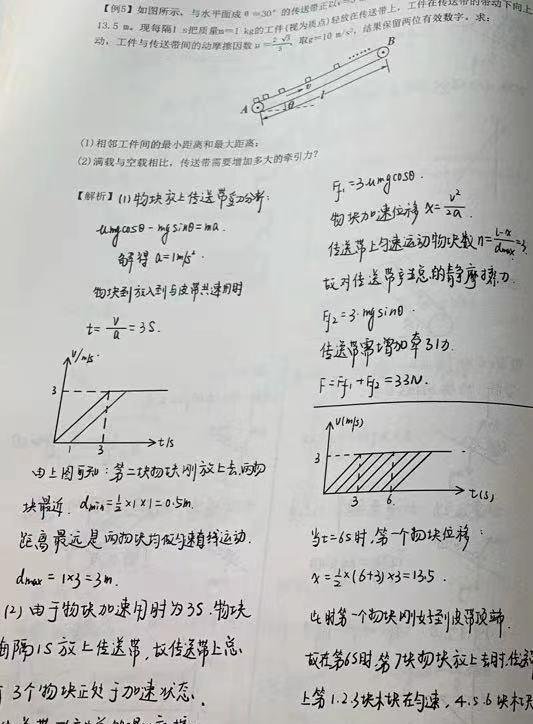 【例5】如图所示,与水平面成θ=30°的传送带正以
13.5 m。现每隔1 s把质量m=1 kg的工件(视为质点)轻放在传送带上,工件在传送带的带动下向上
动,工件与传送带间的动摩擦因数μ=2√3/5,取g=10 m/s²,结果保留两位有效数字。求:
B
v
A
θ
l
(1)相邻工件间的最小距离和最大距离;
(2)满载与空载相比,传送带需要增加多大的牵引力?
【解析】(1)物块放上传送带受力分析:
μmgcosθ-mgsinθ=ma.
解得 a=1m/s².
物块到放入到与皮带共速用时
t=v/a=3s.
v/m/s
3
1
3
t/s
由上图可知:第二块物块刚放上去,两物
块最近. dmin=½×1×1=0.5m.
距离最远是两物块均做匀速直线运动.
dmax=1×3=3m.
(2)由于物块加速用时为3S.物块
每隔1S放上传送带,故传送带上总
3个物块正处于加速状态.
Ff1=3μmgcosθ.
物块加速位移 x=v²/2a.
传送带上匀速运动物块数 n=(L-x)/dmax=3.
故对传送带产生总的静摩擦力.
Ff2=3·mgsinθ.
传送带需增加牵引力.
F=Ff1+Ff2=33N.
V(m/s)
3
3
6
t(s)
当t=6s时,第一个物块位移:
x=½×(6+3)×3=13.5.
此时第一个物块刚好到皮带顶端.
故在第6S时,第7块物块放上去时,传送
上第1.2.3块木块在匀速,4.5.6块木块